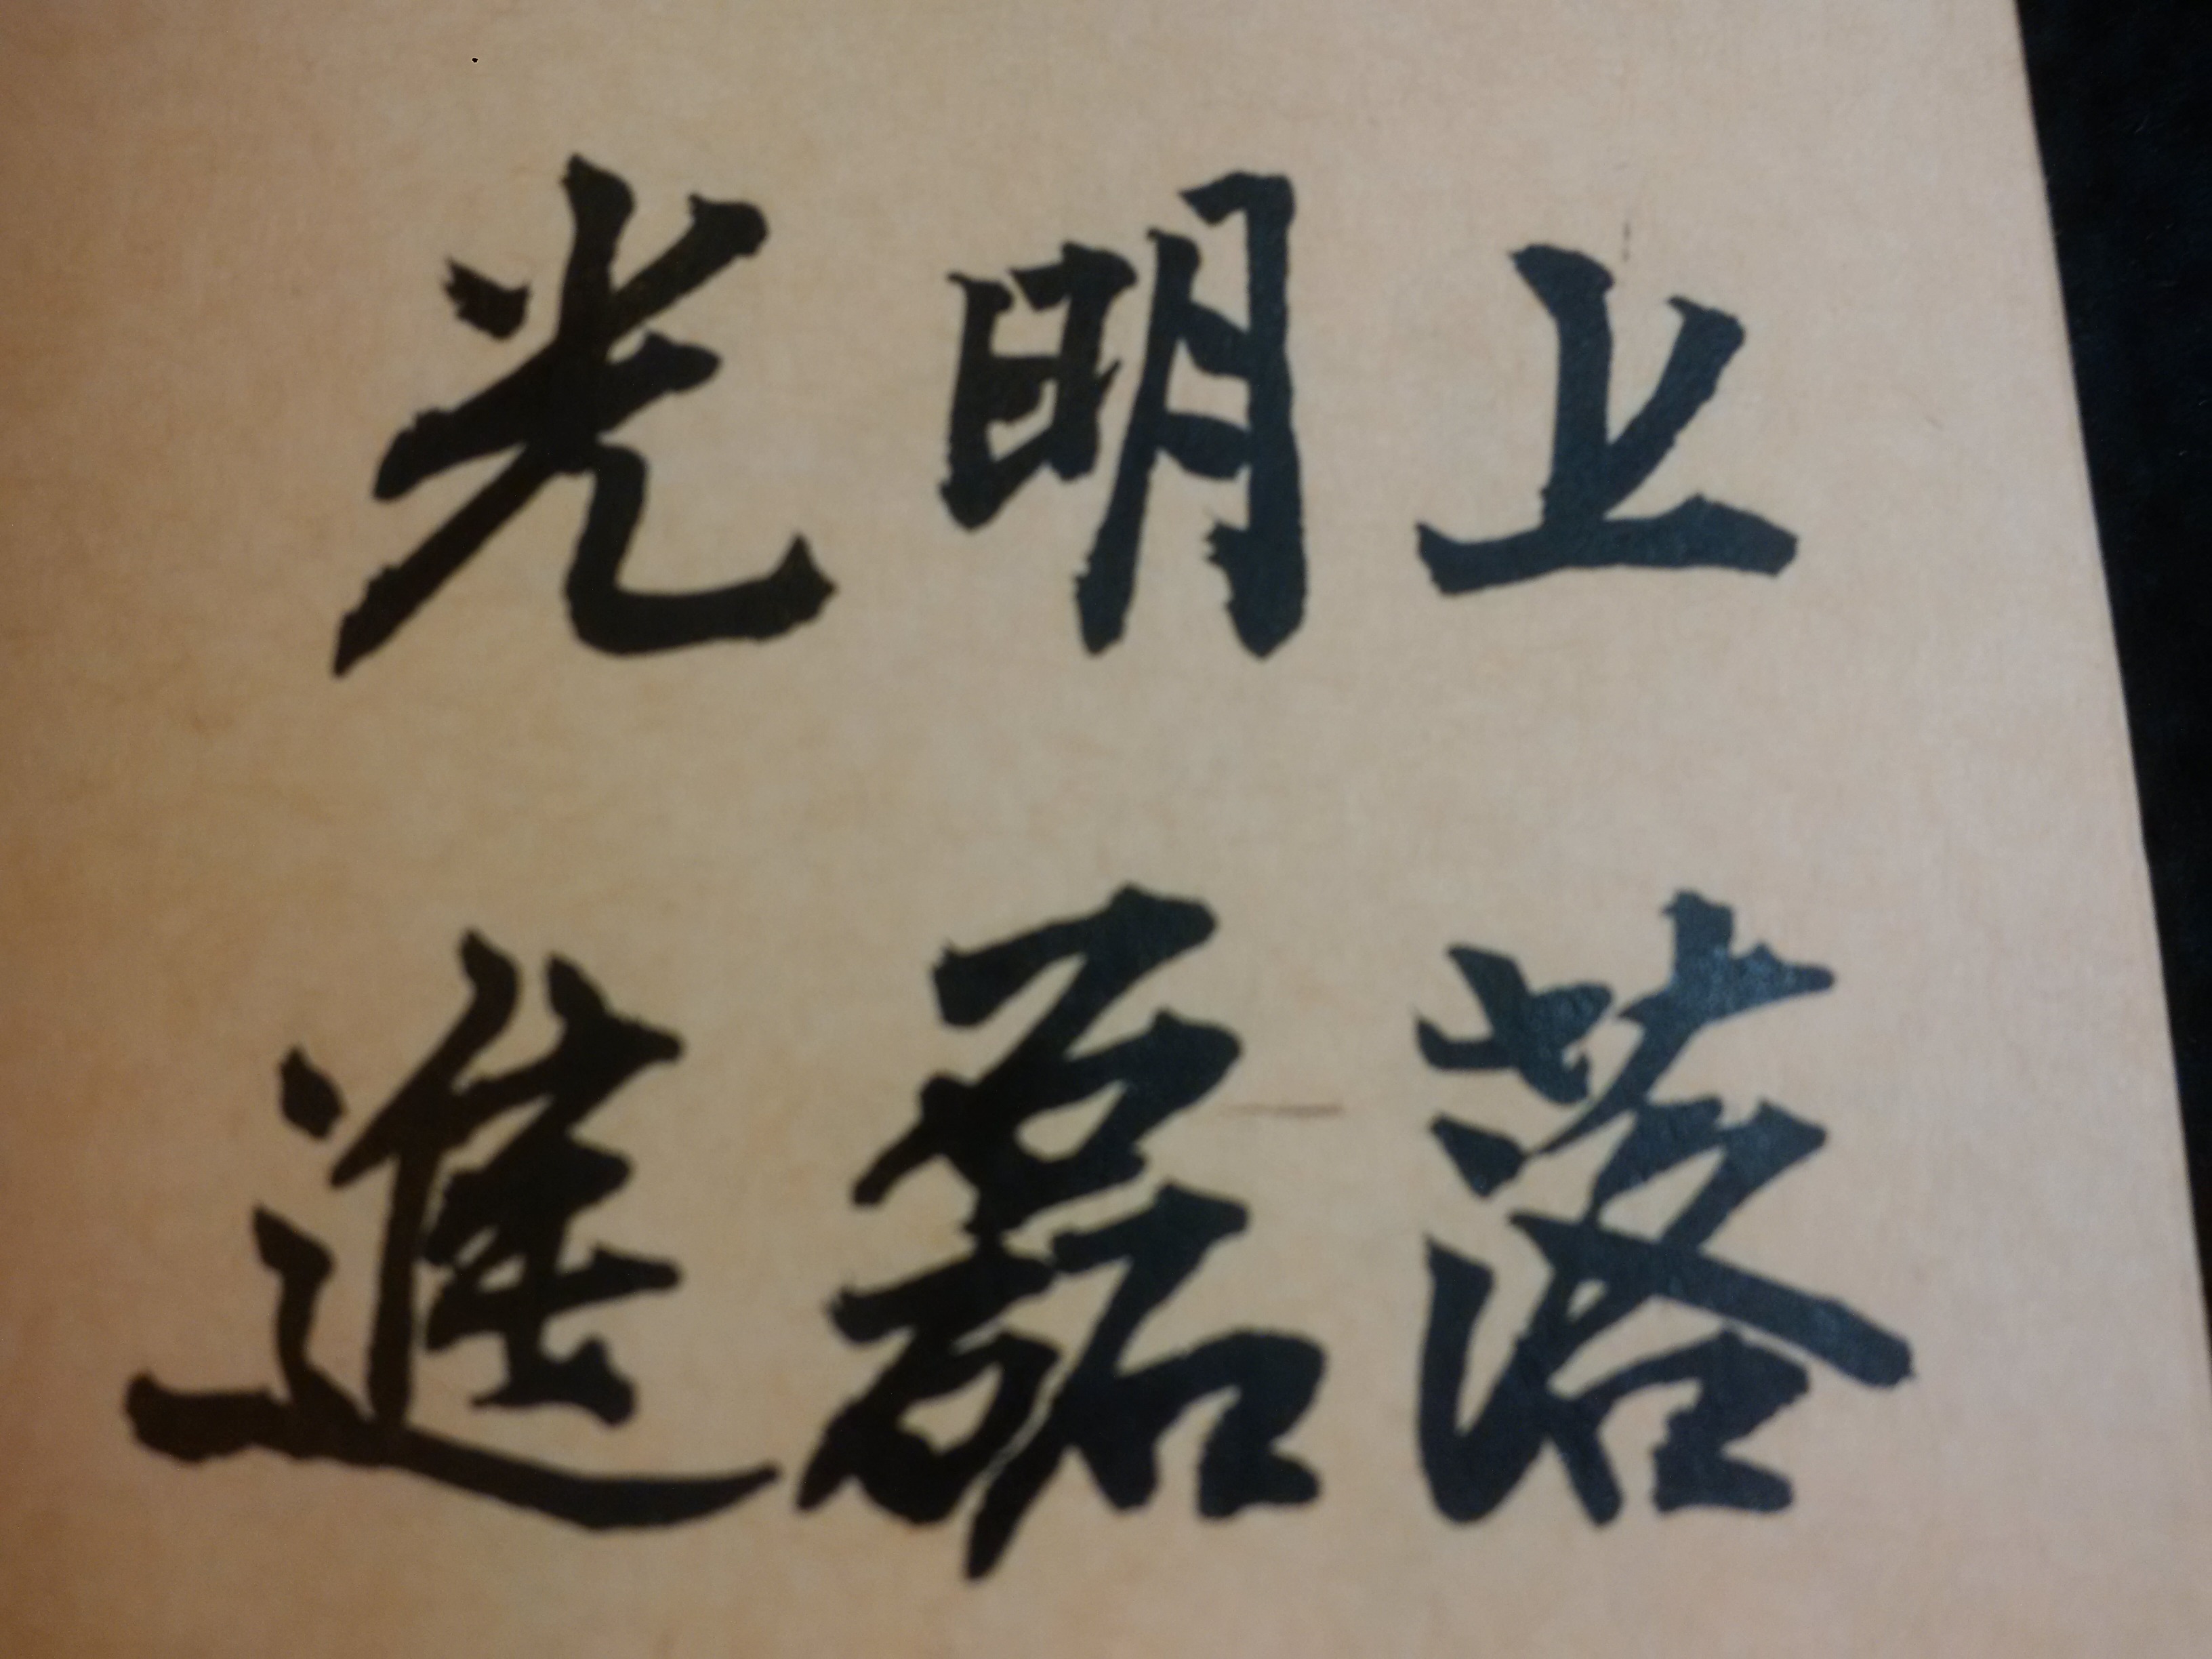 光明上
進磊落